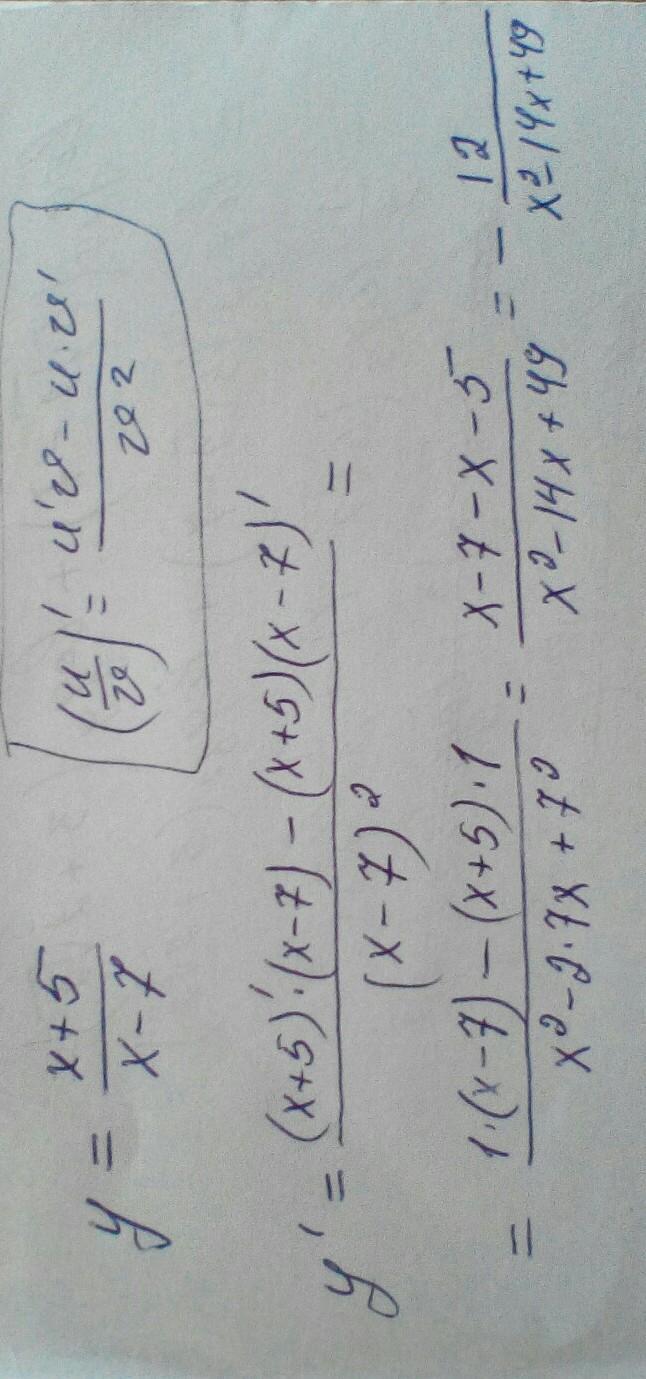 y = (x+5)/(x-7)   (u/v)' = (u'v - u·v')/v²
y' = ((x+5)'·(x-7) - (x+5)(x-7)')/(x-7)² =
= (1·(x-7) - (x+5)·1)/(x²-2·7x+7²) = (x-7-x-5)/(x²-14x+49) = - 12/(x²-14x+49)